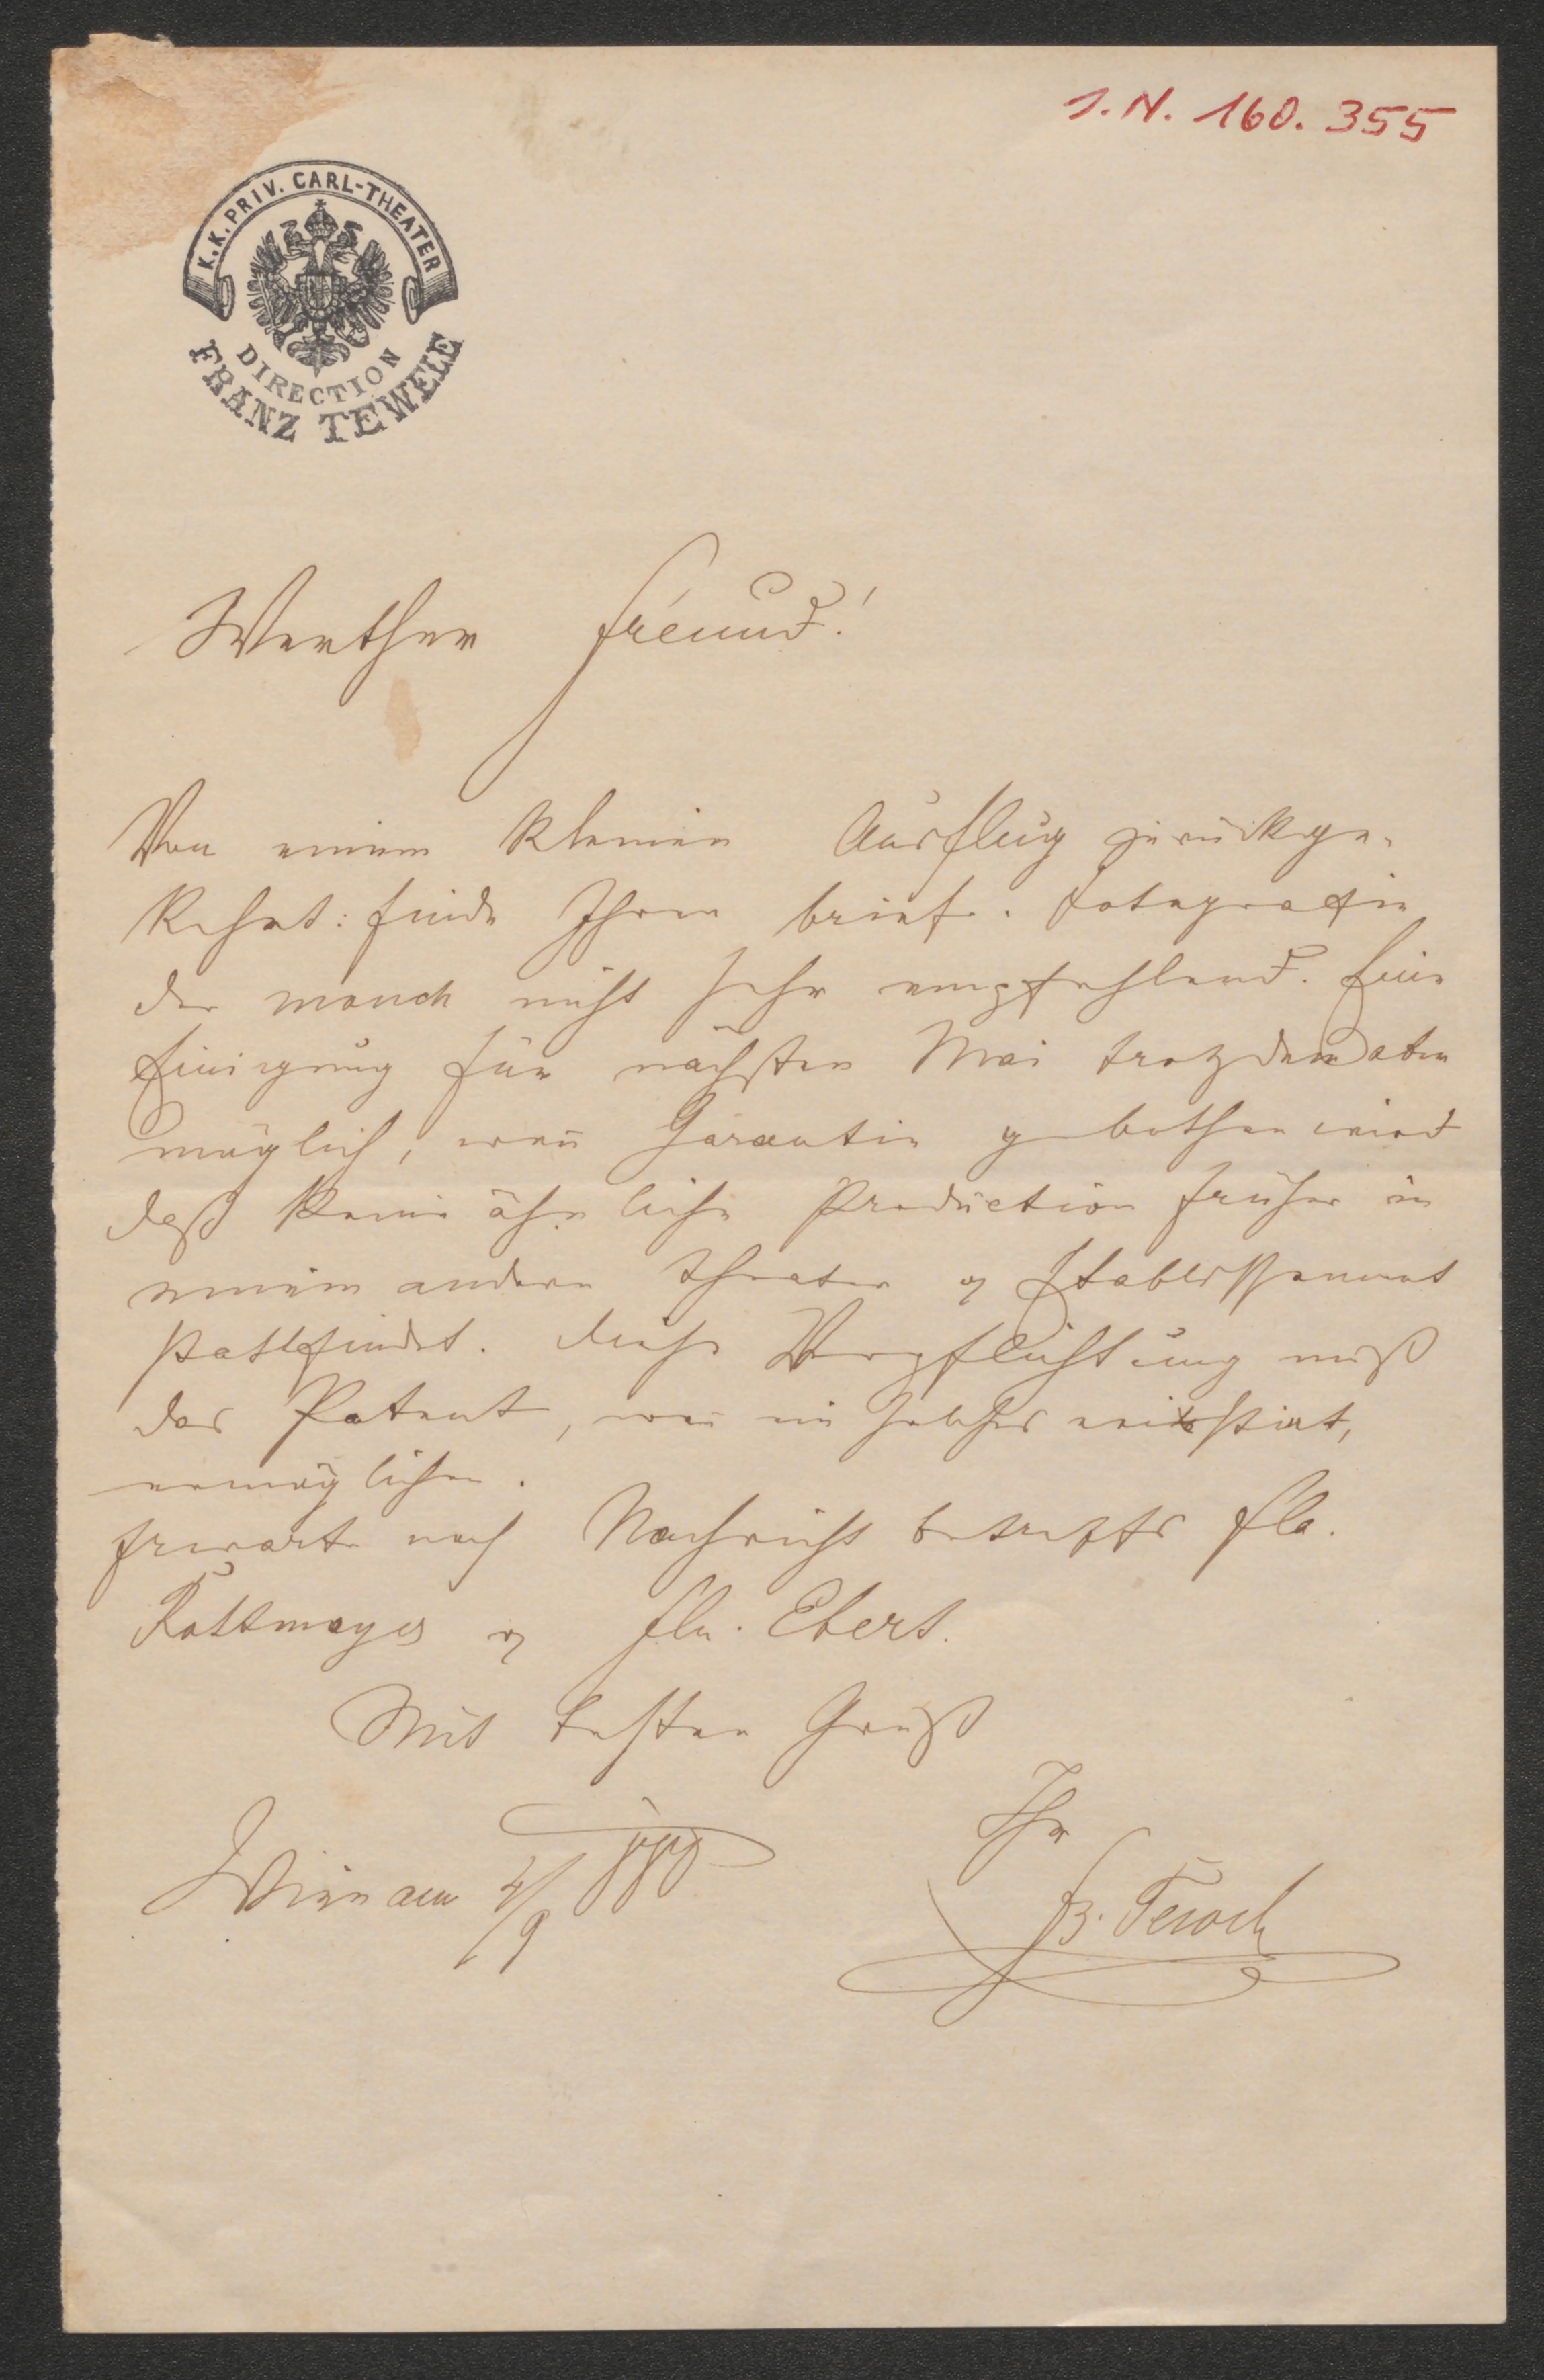 I. N. 160. 355
K. K. PRIV. CARL-THEATER
DIRECTION
FRANZ TEWELE
Werther Freund!
Von einem kleinen Ausflug zurückge-
kehrt: finde Ihren brief. Fotografie
der nicht sehr empfehlend. Eine
Einigung für nächsten Mai trozdem aber
möglich, wen Garantie gebothen wird
daß keine ähnliche Production früher in
einem andern Theater & Etablissement
stattfindet. diese Verpflichtung muß
das Patent, wen ein solches existirt,
ermöglichen.
Erwarte noch Nachricht betreffs Frl.
Rottmayer & Frln. Ebert.
Mit besten Gruß
Ihr
Wien am 4/9